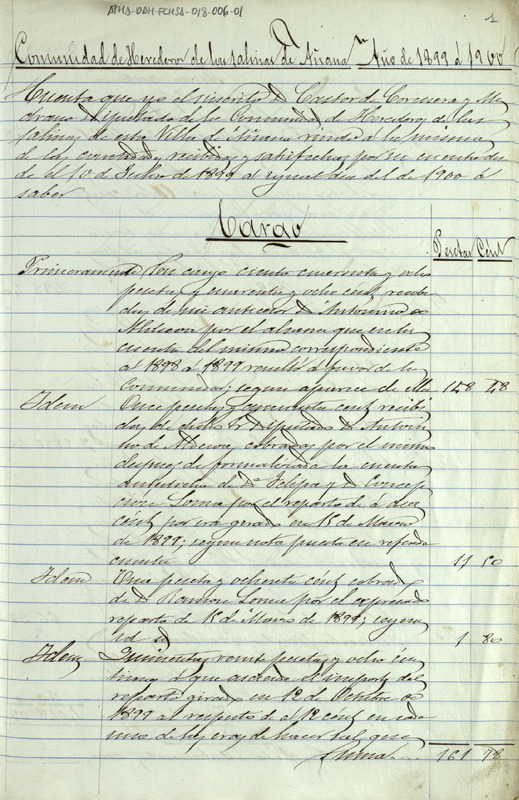 ATHA-DAH-FCHSA-018-006-01
1
Comunidad de Herederos de las Salinas de Añana Año de 1899 á 1900
Cuenta que yo el suscrito D. Castor de Corcuera y
Diputado de la Comunidad de Herederos de las
Salinas de esta Villa de Añana rindo á la misma
de las cantidades recibidas y satisfechas por mi cuenta des
de el 10 de Julio de 1899 al igual dia del de 1900 á
saber
Cargo
Pesetas Cént
Primeramente Son cargo ciento cuarenta y ocho
pesetas y cuarenta y ocho cént recibi
das de mi antecesor D. Antonino de
por el alcance que en la
cuenta del mismo correspondiente
al 1898 á 1899 resultó á favor de la
Comunidad; segun aparece de ella 148 48
Idem Once pesetas y cincuenta cént recibi
das de dicho Diputado D. Antoni
no de cobradas por el mismo
despues de formalizada la cuenta
antedicha de Da. Felipa y Da. Concep
cion por el reparto de á diez
cént por era girado en 15 de Marzo
de 1899; segun nota puesta en referida
cuenta 11 50
Idem Una peseta y ochenta cént cobradas
de D. Ramon por el expresado
reparto de 15 de Marzo de 1899; segun
1 80
Idem Quinientas veinte pesetas y ocho cén
timos á que asciende el importe del
reparto girado en 12 de Octubre de
1899 al respecto de á 12 cént en cada
una de las eras de hacer sal que
Suma 161 78